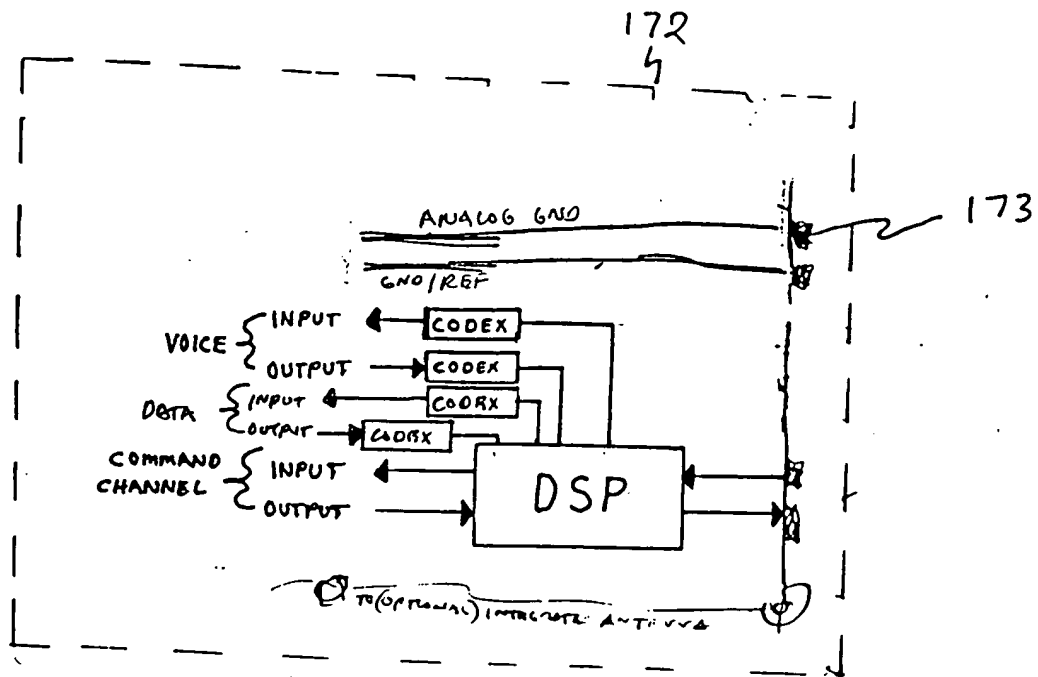 172
173
ANALOG GND
GND/REF
VOICE
INPUT
CODEX
OUTPUT
CODEX
DATA
INPUT
CODEX
OUTPUT
CODEX
COMMAND
CHANNEL
INPUT
OUTPUT
DSP
TO (OPTIONAL) INTEGRATE ANTENNA